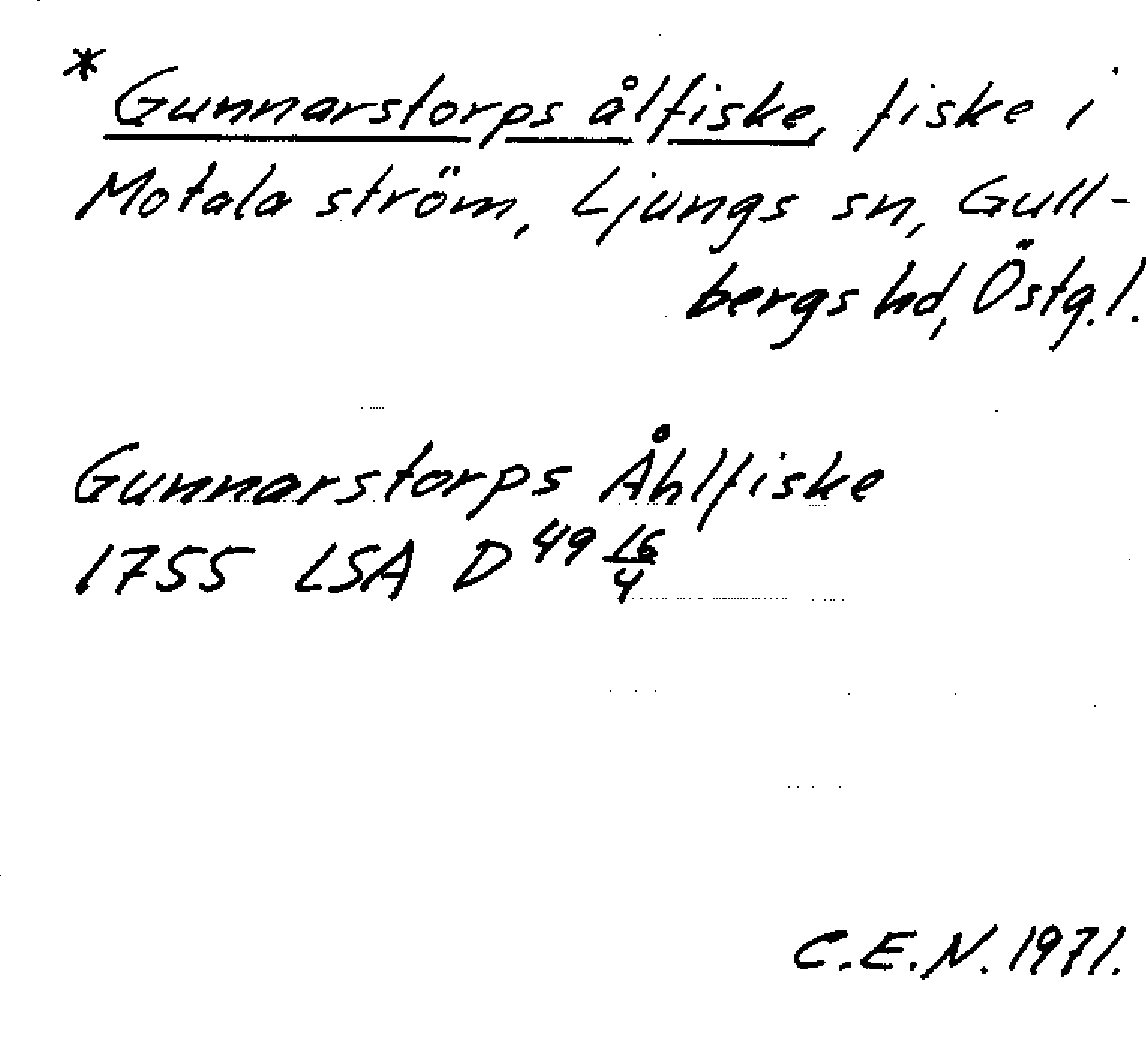 * Gunnarstorps ålfiske, fiske i
Motala ström, Ljungs sn, Gull-
bergs hd, Östg.l.
Gunnarstorps Åhlfiske
1755 LSA D 49 16/4
C.E.N. 1971.